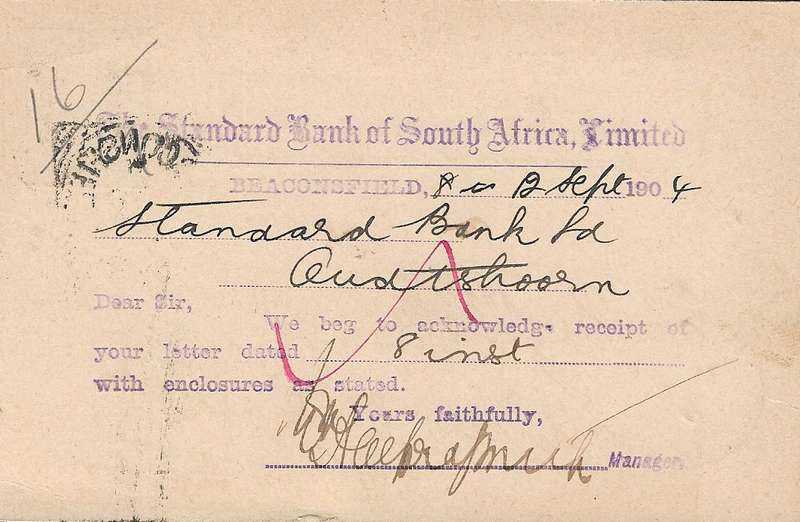 16
The Standard Bank of South Africa, Limited
BEACONSFIELD, 12 Sept 1904
Standard Bank Ld
Oudtshoorn
Dear Sir,
We beg to acknowledge receipt of
your letter dated 8 inst
with enclosures as stated.
Yours faithfully,
Manager.